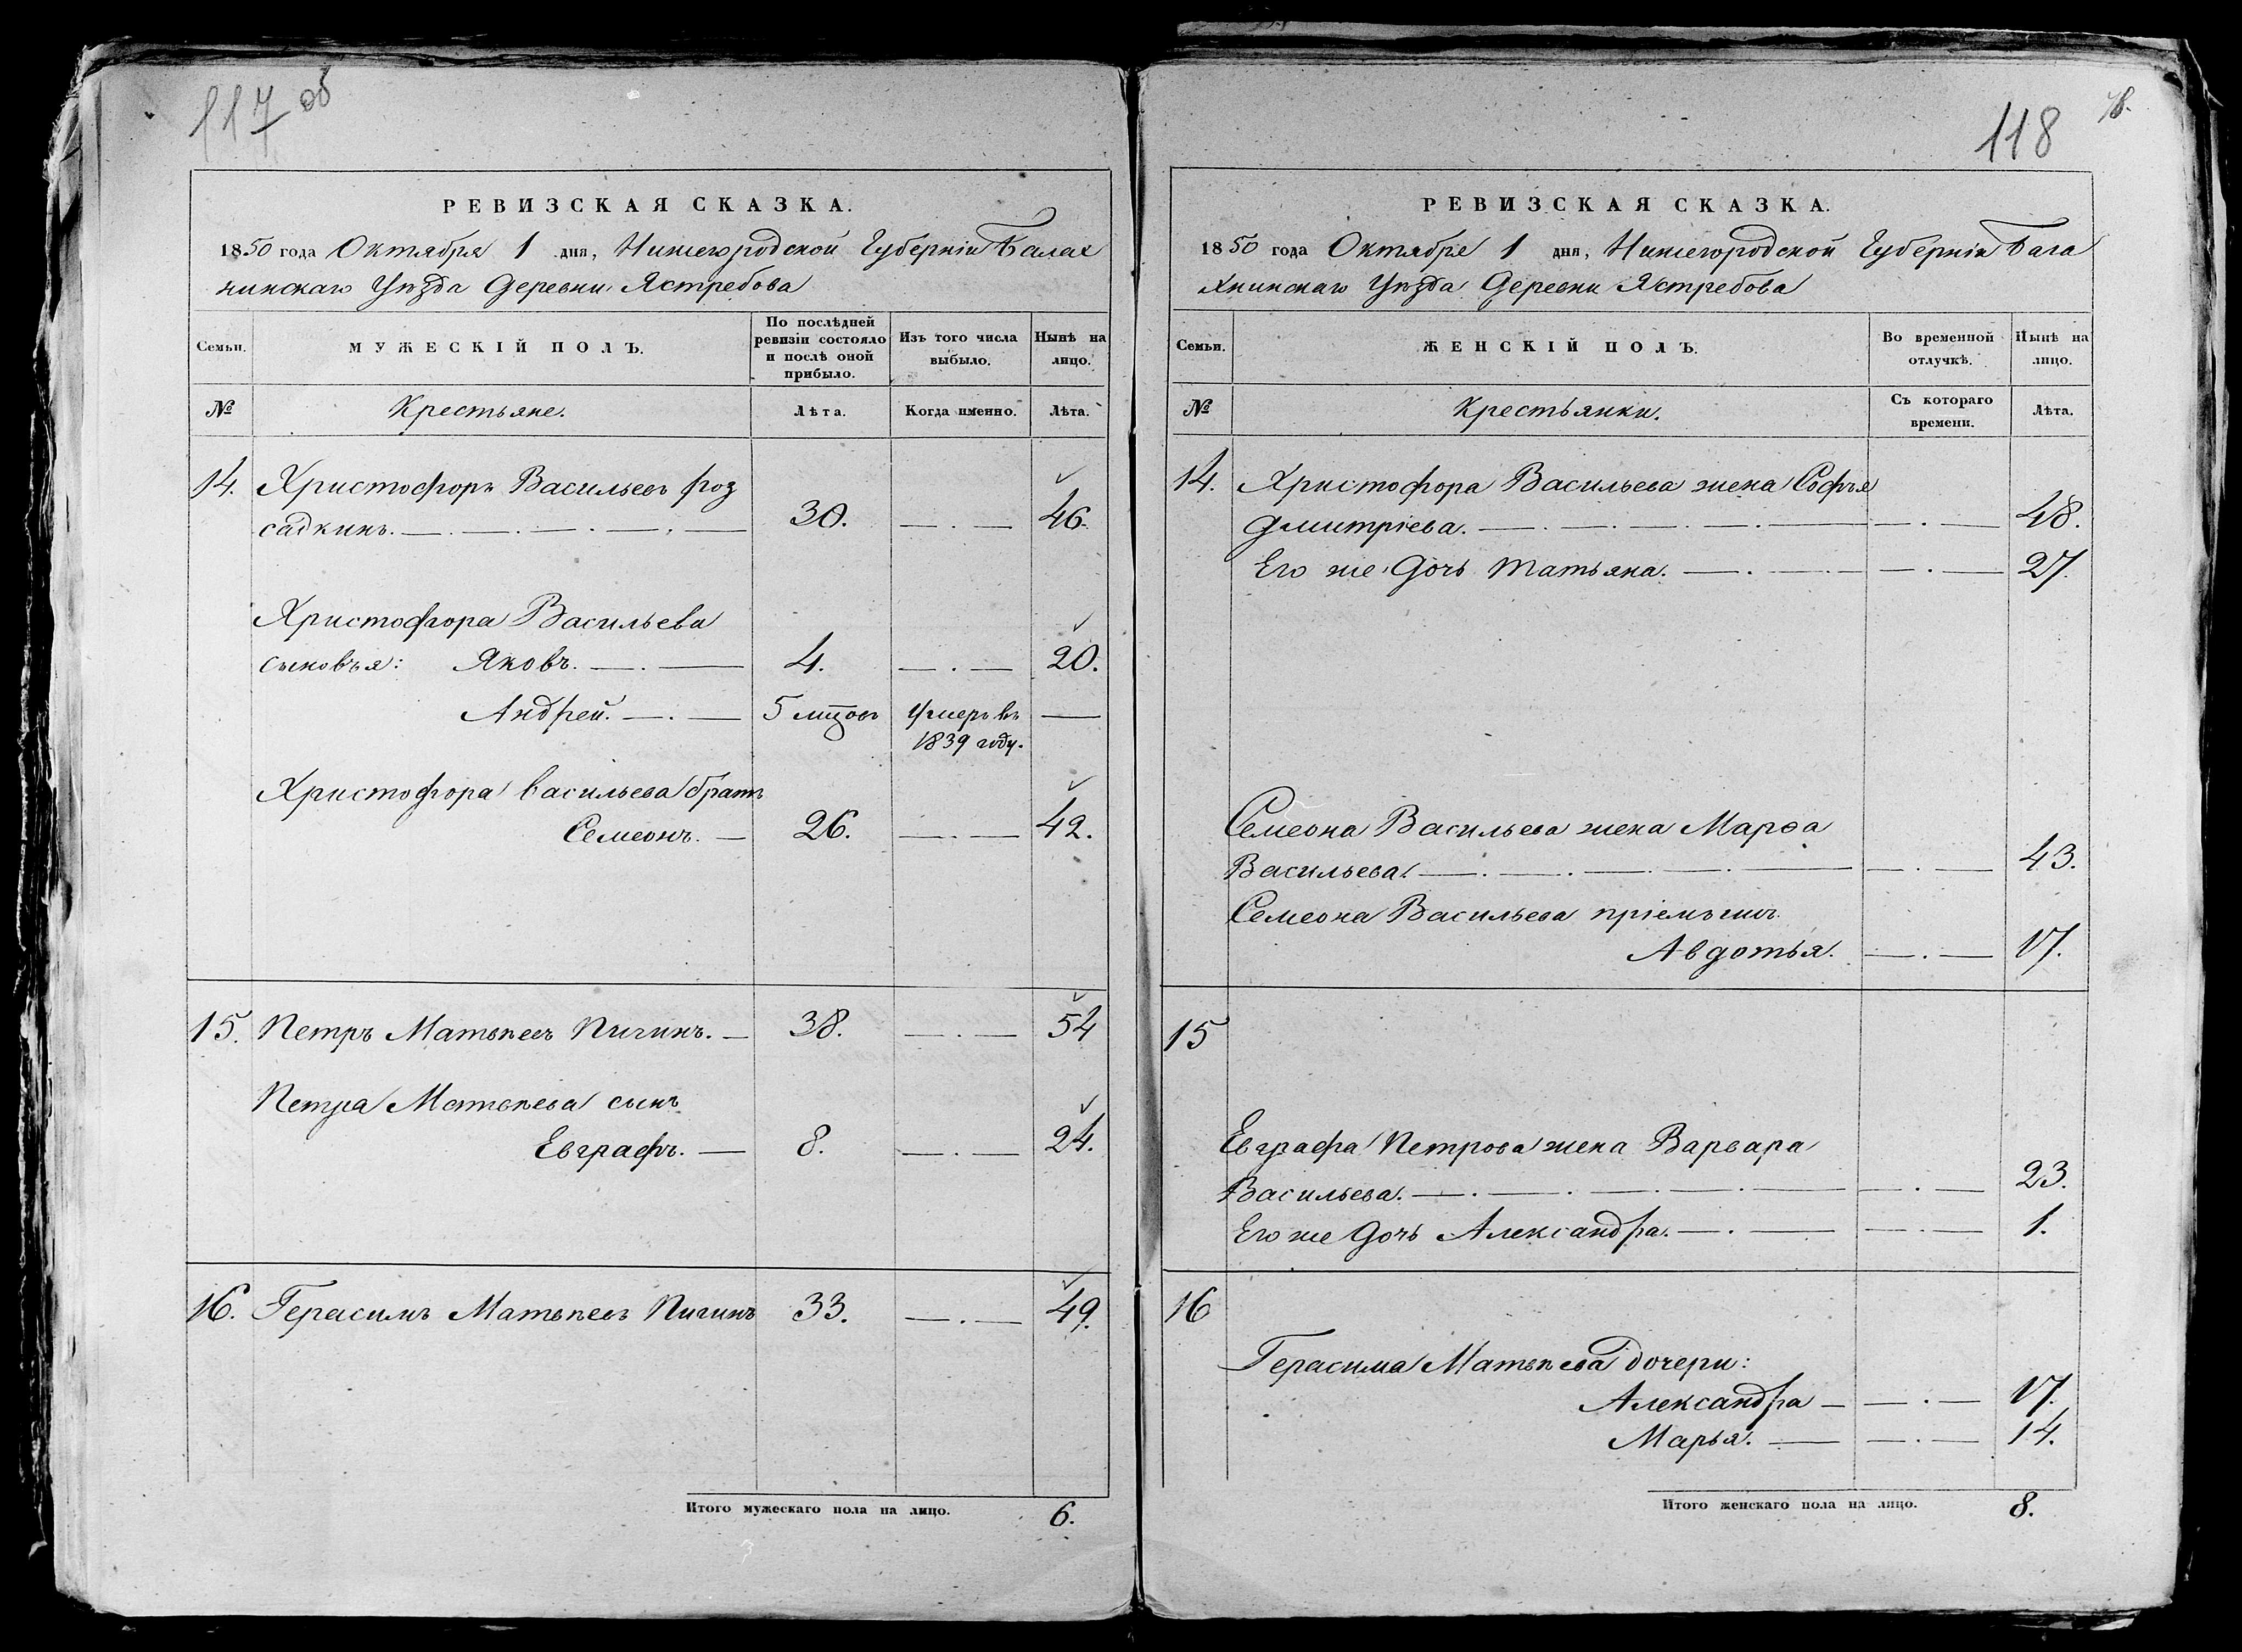 117 об
РЕВИЗСКАЯ СКАЗКА.
1850 года Октября 1 дня, Нижегородской Губерніи Балах
нинскаго Уѣзда Деревни Ястребова
Семьи.
МУЖЕСКІЙ ПОЛЪ.
По послѣдней
ревизіи состояло
и послѣ оной
прибыло.
Изъ того числа
выбыло.
Нынѣ на
лицо.
№
Крестьяне.
Лѣта.
Когда именно.
Лѣта.
14. Христофоръ Васильевъ роз
садкинъ. 30. 46.
Христофора Васильева
сыновья: Яковъ. 4. 20.
Андрей. 5 мцовъ Умеръ въ
1839 году.
Христофора васильева братъ
Семеонъ. 26. 42.
15. Петръ Матвѣевъ Пигинъ. 38. 54
Петра Матвѣева сынъ
Евграфъ. 8. 24.
16. Герасимъ Матвѣевъ Пигинъ 33. 49.
Итого мужескаго пола на лицо. 6.
118
РЕВИЗСКАЯ СКАЗКА.
1850 года Октября 1 дня, Нижегородской Губерніи Бала
хнинскаго Уѣзда Деревни Ястребова
Семьи.
ЖЕНСКІЙ ПОЛЪ.
Во временной
отлучкѣ.
Нынѣ на
лицо.
№
Крестьянки.
Съ котораго
времени.
Лѣта.
14. Христофора Васильева жена Софья
Дмитріева. 48.
Его же Дочь Татьяна. 27.
Семеона Васильева жена Марѳа
Васильева. 43.
Семеона Васильева пріемышъ
Авдотья. 17.
15
Евграфа Петрова жена Варвара
Васильева. 23.
Его же Дочь Александра. 1.
16
Герасима Матвѣева дочери:
Александра 17.
Марья. 14.
Итого женскаго пола на лицо. 8.